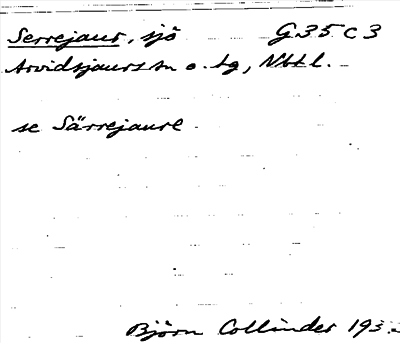 Serrejaur, sjö G.35 C 3
Arvidsjaurs sn o. tg, Nbtl.
se Särrejaure
Björn Collinder 193